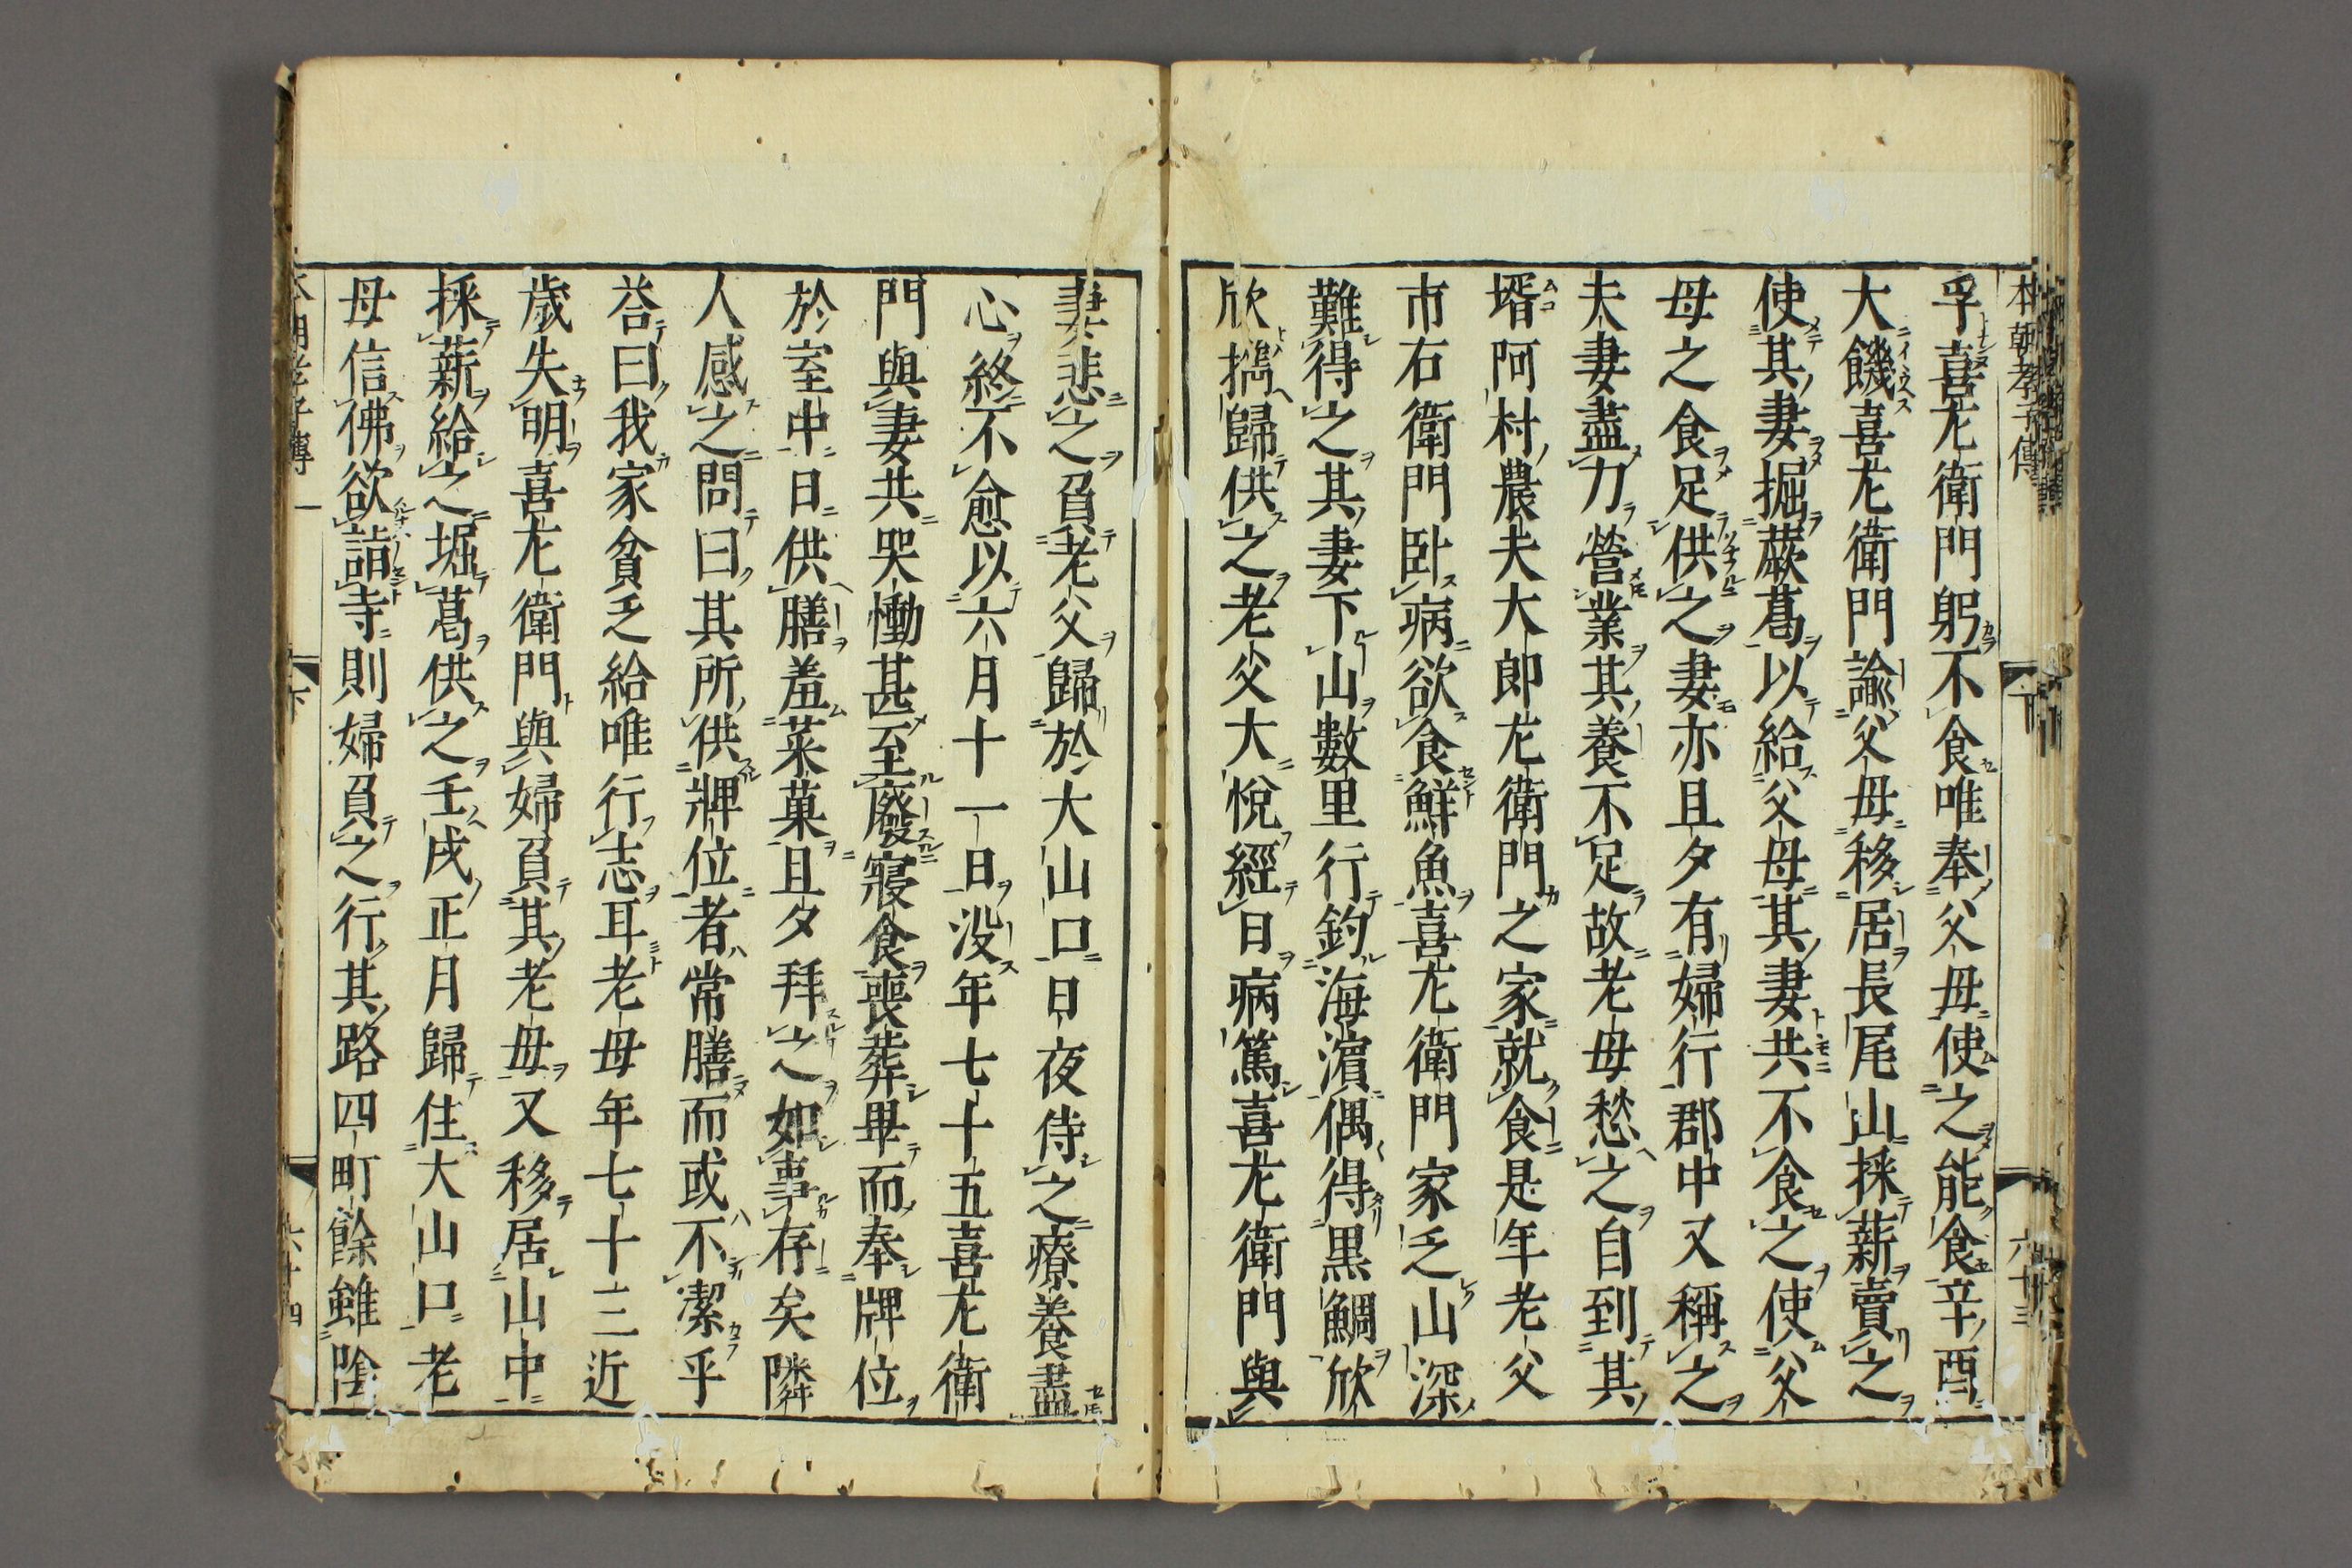 本朝孝子傳
下
六十三
孚喜左衛門躬不食唯奉父母使之能食辛酉
大饑喜左衛門諭父母移居長尾山採薪賣之
使其妻掘蕨葛以給父母其妻共不食之使父
母之食足供之妻亦且夕有婦行郡中又稱之
夫妻盡力營業其養不足故老母愁之自到其
壻阿村農夫大郎左衛門之家就食是年老父
市右衛門臥病欲食鮮魚喜左衛門家乏山深
難得之其妻下山數里行釣海濵偶得黒鯛欣
欣攜歸供之老父大悅經日病篤喜左衛門與
妻悲之負老父歸於大山口日夜侍之療養盡
心終不愈以六月十一日没年七十五喜左衛
門與妻共哭慟甚至廢寢食喪葬畢而奉牌位
於室中日供膳羞菜菓且夕拜之如事存矣隣
人感之問曰其所供牌位者常膳而或不潔乎
答曰我家貧乏給唯行志耳老母年七十三近
歲失明喜左衛門與婦負其老母又移居山中
採薪給之堀葛供之壬戌正月歸住大山口老
母信佛欲詣寺則婦負之行其路四町餘雖陰
本朝孝子傳
下
六十四